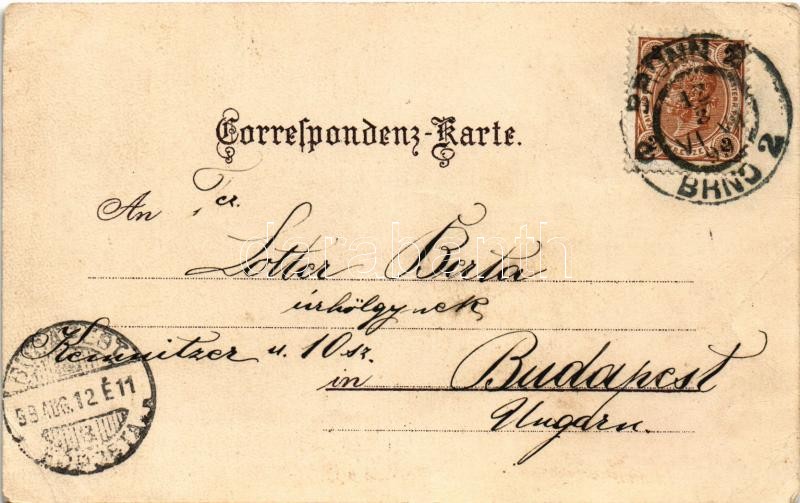 Correspondenz-Karte.
BRÜNN 2
BRNO 2
An Fr.
Lotter Berta
úrhölgynek
Kemnitzer u. 10 sz.
in Budapest
Ungarn.
BUDAPEST
99 AUG. 12 É11
darabanth